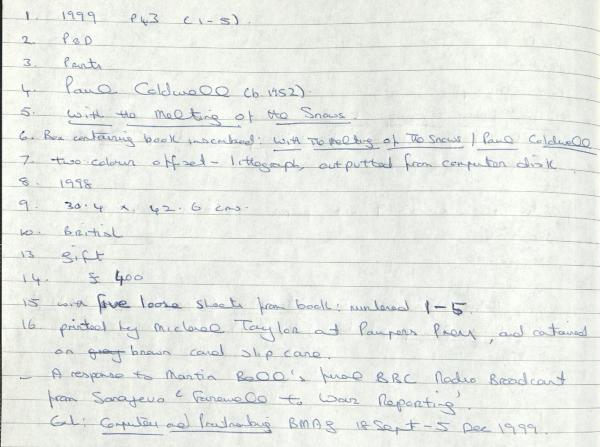 1. 1999 P43 (1-5).
2. P&D
3. Prints
4. Paul Coldwell (b. 1952).
5. With the Melting of the Snows.
6. Box containing book inscribed: With The Melting of The Snows / Paul Coldwell
7. two colour offset-lithograph, outputted from computer disk
8. 1998
9. 30.4 x 42.6 cms.
10. British
13 gift
14. £ 400
15 with five loose sheets from book: numbered 1-5.
16. printed by Michael Taylor at Paupers Press, and contained
on grey brown card slip case.
- A response to Martin Bell's final BBC Radio Broadcast
from Sarajevo 'Farewell to War Reporting'.
Cat: Computers and Printmaking BMAG 18 Sept-5 Dec 1999.